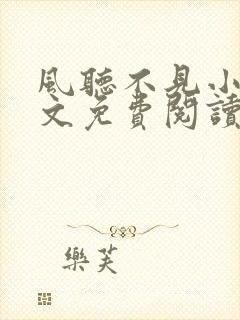 風聽不見小
文免費閱讀
樂芙